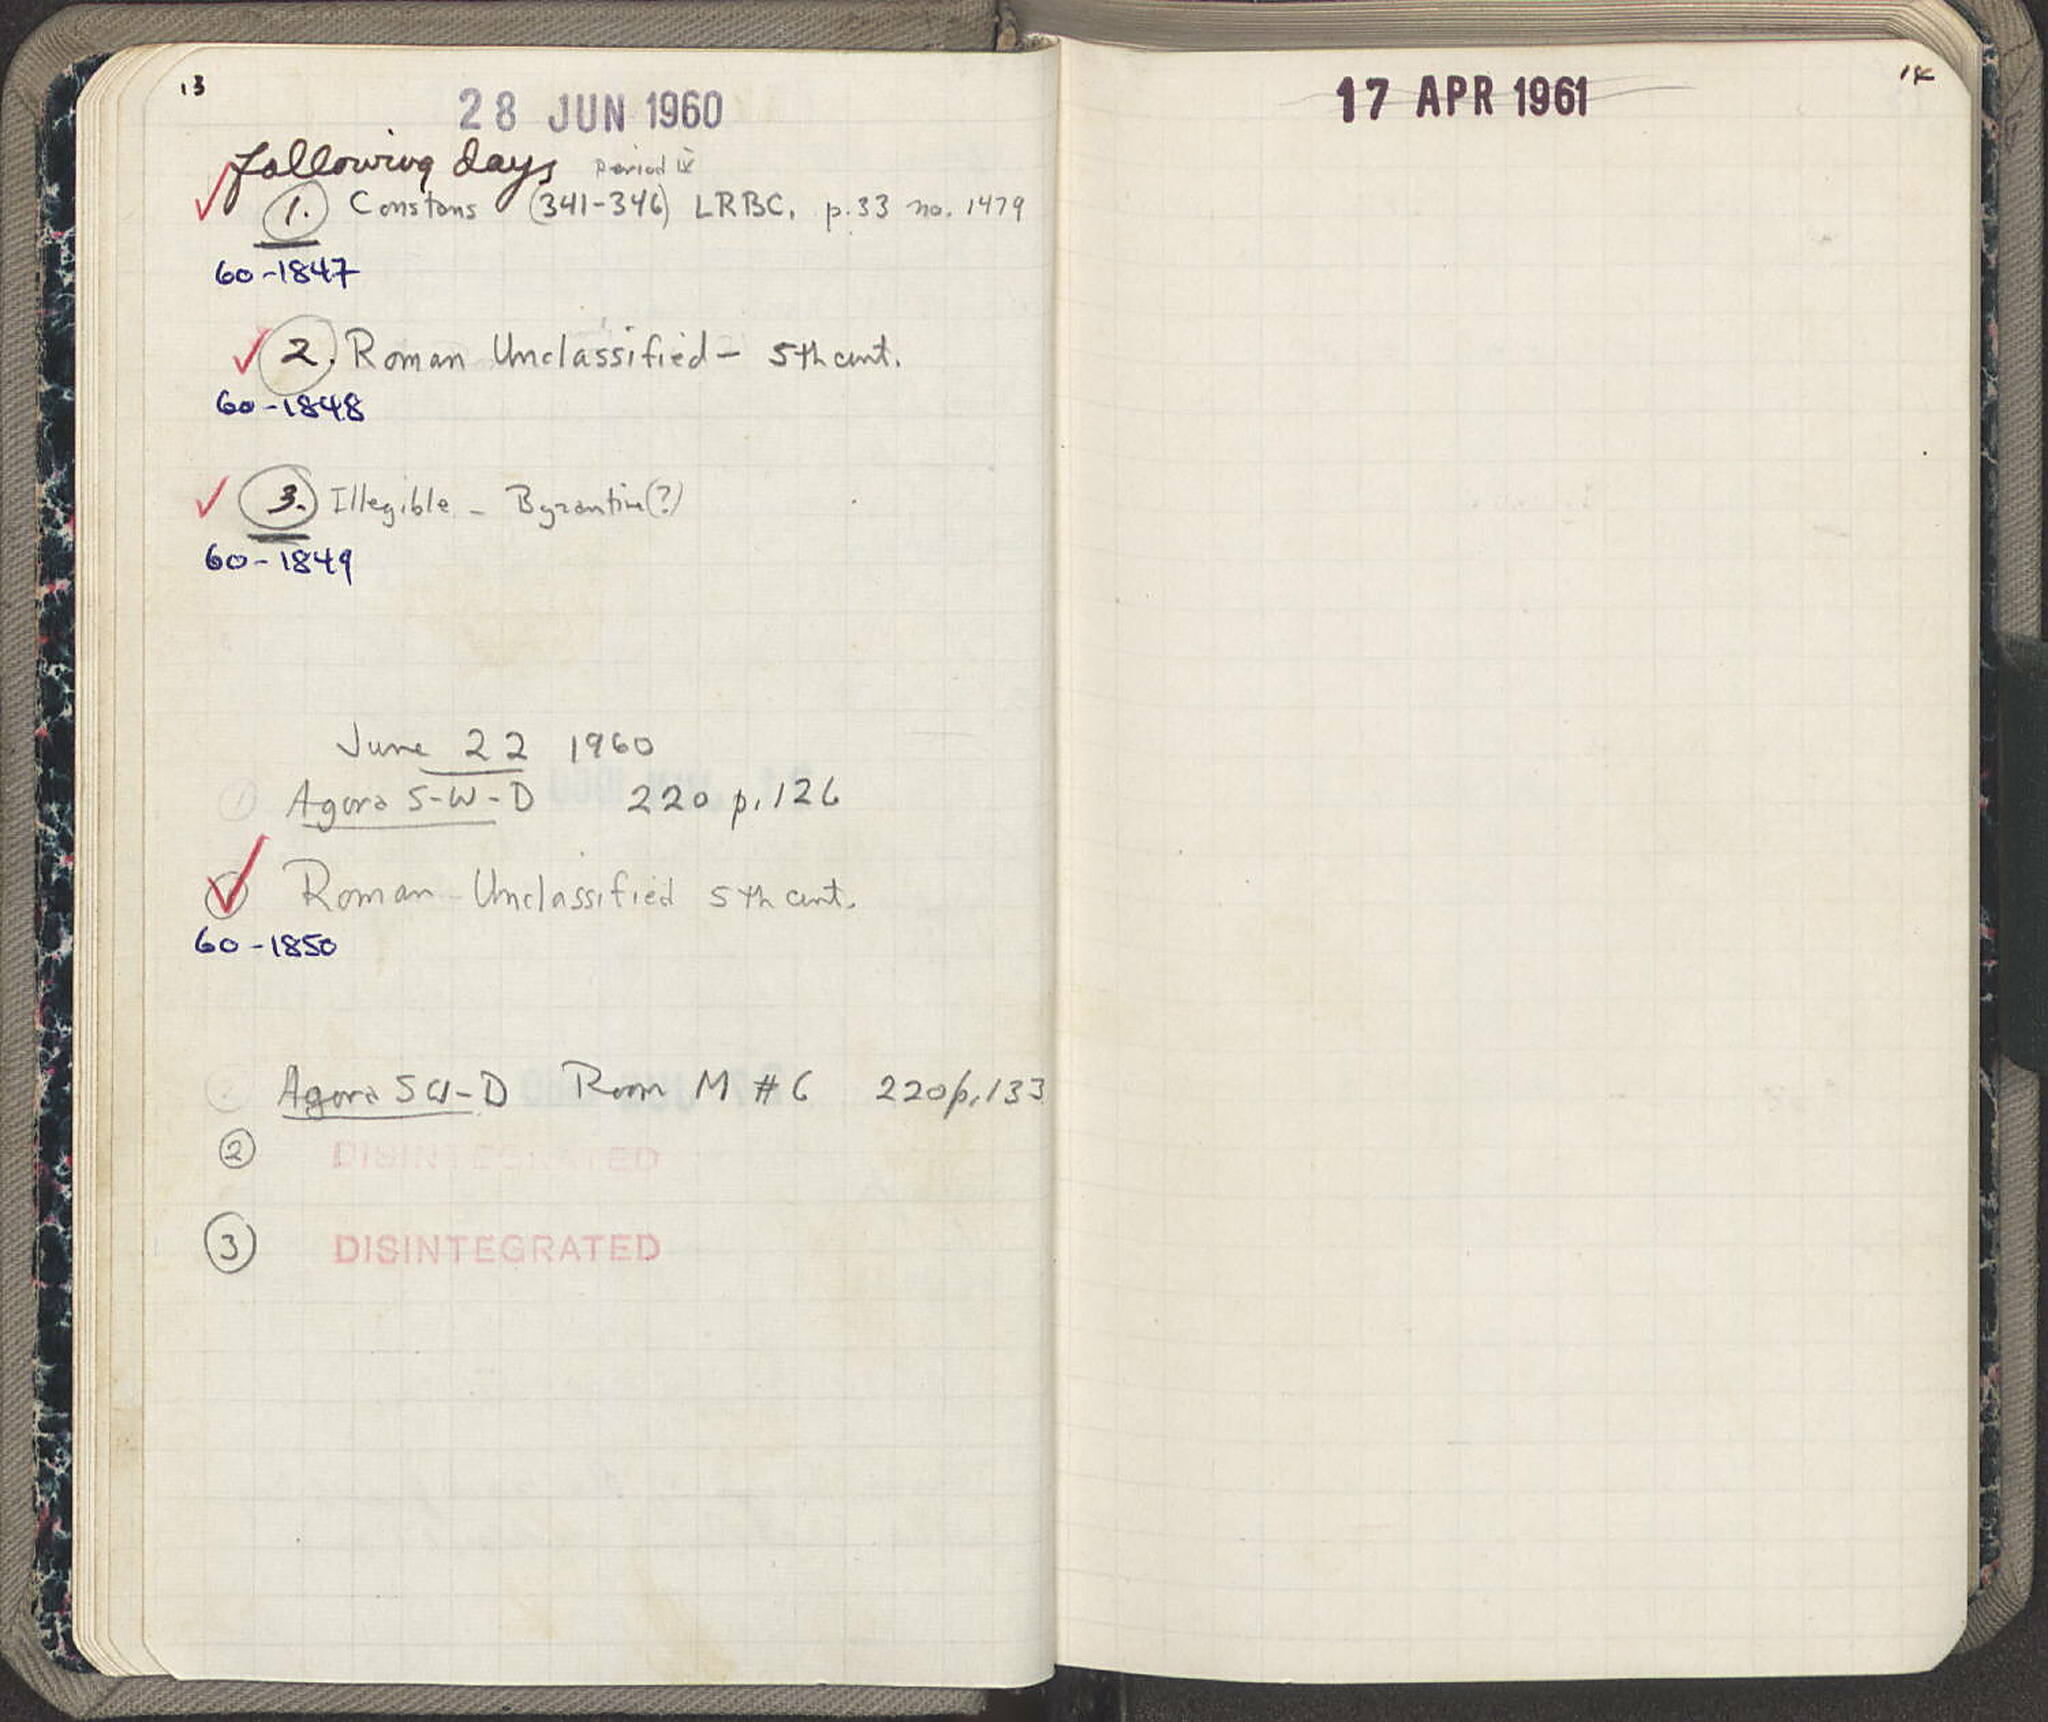 13
28 JUN 1960
following days Period IV
1. Constans (341-346) LRBC. p.33 no. 1479
60-1847
2. Roman Unclassified - 5th cent.
60-1848
3. Illegible - Byzantine(?)
60-1849
June 22 1960
Agora S-W-D 220 p. 126
Roman Unclassified 5th cent.
60-1850
Agora SW-D Room M #6 220 p. 133
2 DISINTEGRATED
3 DISINTEGRATED
14
17 APR 1961